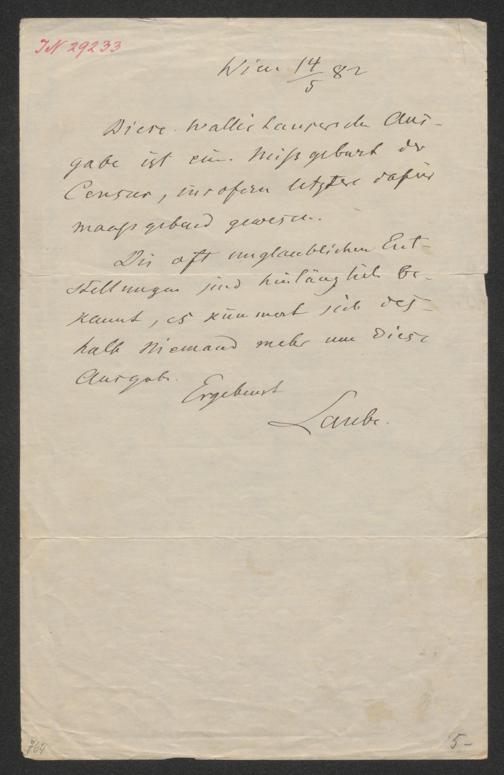 IN 29233
Wien 14/5 82
Diese Wallishausersche Aus-
gabe ist eine Missgeburt der
Censur, insofern letztere dafür
maassgebend gewesen.
Die oft unglaublichen Ent-
stellungen sind hinlänglich be-
kannt, es kümmert sich des-
halb Niemand mehr um diese
Ausgabe.
Ergebenst
Laube.
764
5-